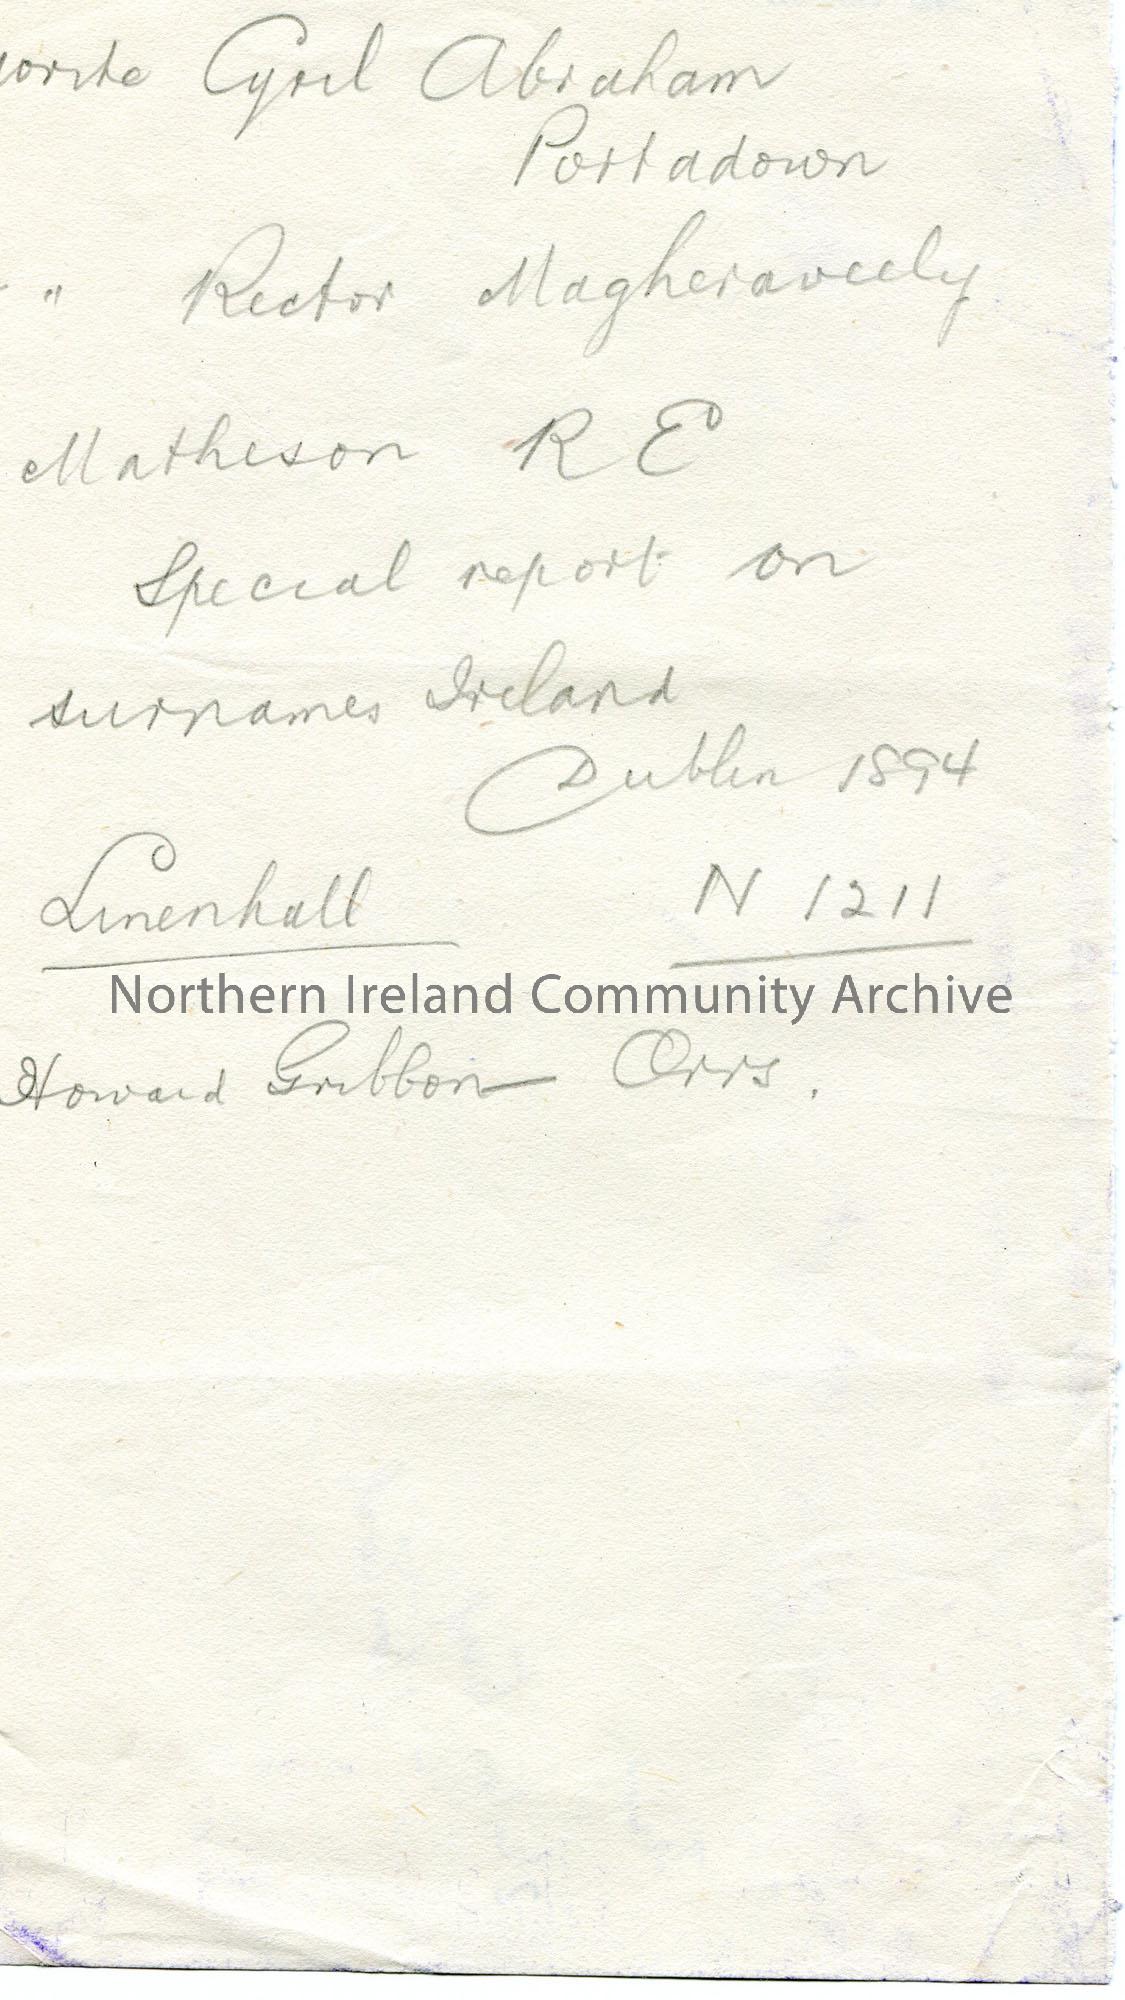 Cyril Abraham
Portadown
" Rector Magheraveely
Matheson R E
Special report on
surnames Ireland
Dublin 1894
Linenhall N 1211
Northern Ireland Community Archive
Howard Gribbon Orrs.